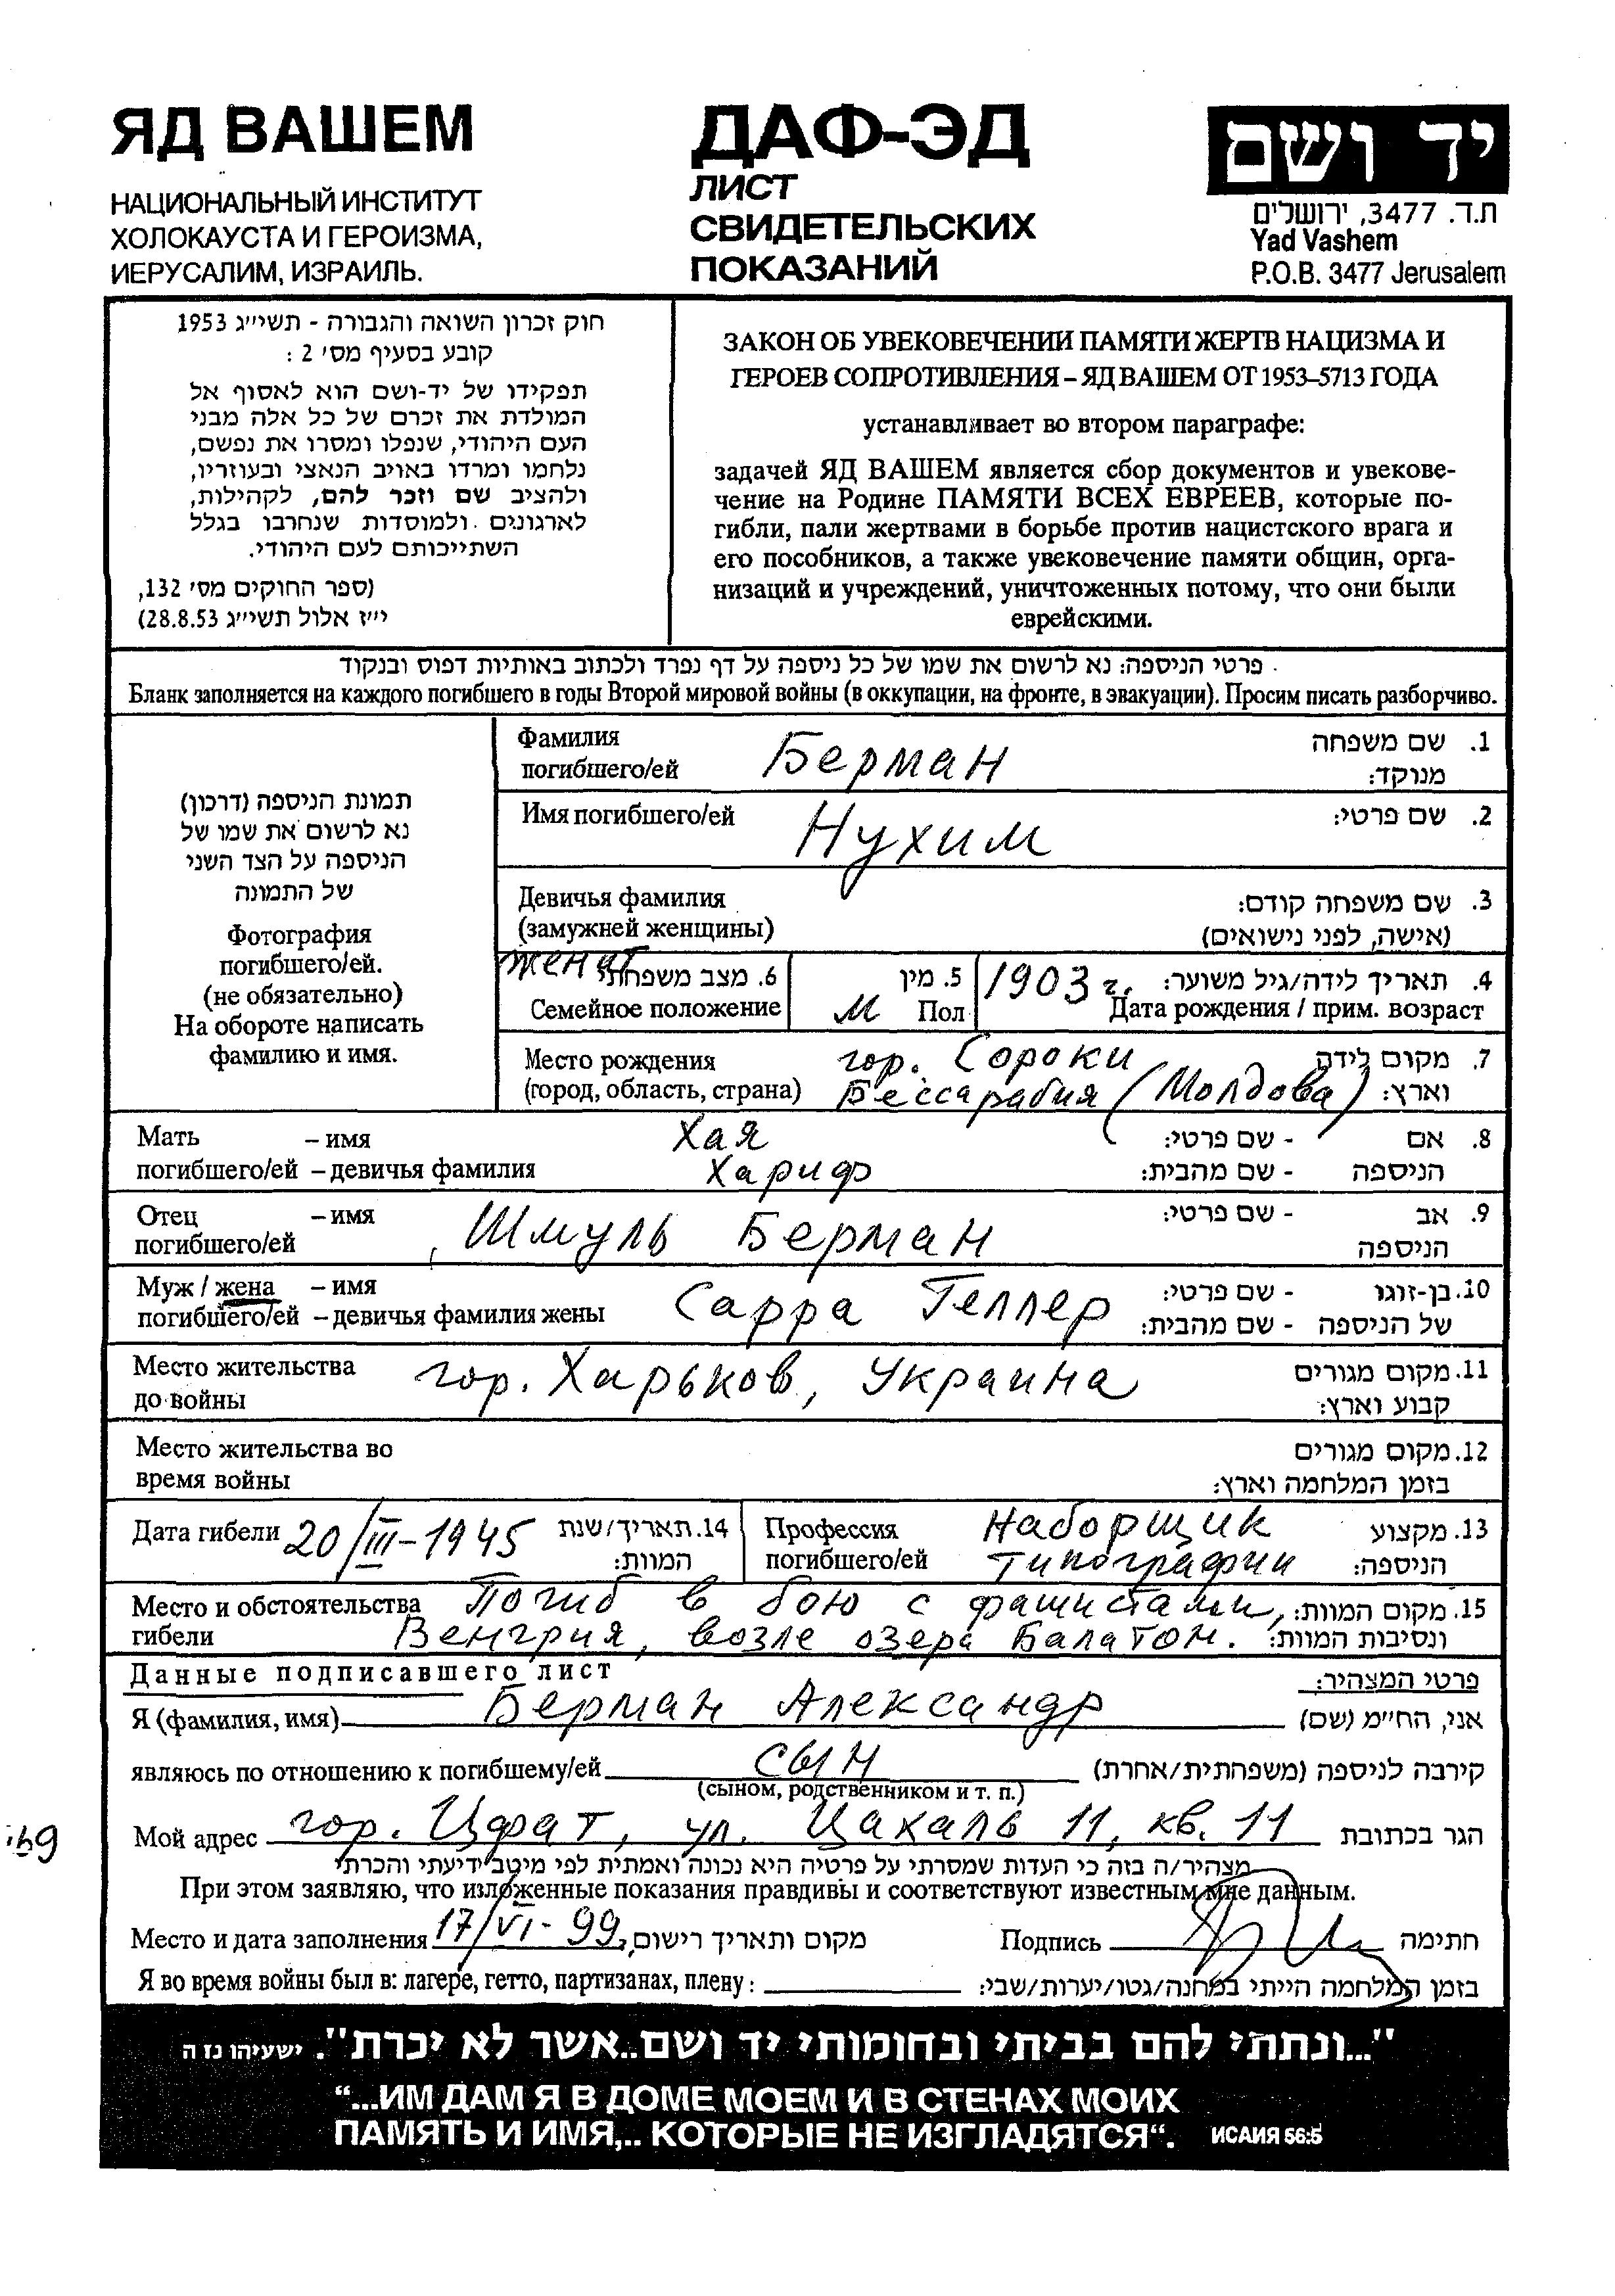 ЯД ВАШЕМ
НАЦИОНАЛЬНЫЙ ИНСТИТУТ
ХОЛОКАУСТА И ГЕРОИЗМА,
ИЕРУСАЛИМ, ИЗРАИЛЬ.
ДАФ-ЭД
ЛИСТ
СВИДЕТЕЛЬСКИХ
ПОКАЗАНИЙ
יד ושם
ת.ד. 3477, ירושלים
Yad Vashem
P.O.B. 3477 Jerusalem
חוק זכרון השואה והגבורה - תשי״ג 1953
קובע בסעיף מס׳ 2 :
תפקידו של יד-ושם הוא לאסוף אל
המולדת את זכרם של כל אלה מבני
העם היהודי, שנפלו ומסרו את נפשם,
נלחמו ומרדו באויב הנאצי ובעוזריו,
ולהציב שם וזכר להם, לקהילות,
לארגונים ולמוסדות שנחרבו בגלל
השתייכותם לעם היהודי.
(ספר החוקים מס׳ 132,
י״ז אלול תשי״ג 28.8.53)
ЗАКОН ОБ УВЕКОВЕЧЕНИИ ПАМЯТИ ЖЕРТВ НАЦИЗМА И
ГЕРОЕВ СОПРОТИВЛЕНИЯ – ЯД ВАШЕМ ОТ 1953–5713 ГОДА
устанавливает во втором параграфе:
задачей ЯД ВАШЕМ является сбор документов и увекове-
чение на Родине ПАМЯТИ ВСЕХ ЕВРЕЕВ, которые по-
гибли, пали жертвами в борьбе против нацистского врага и
его пособников, а также увековечение памяти общин, орга-
низаций и учреждений, уничтоженных потому, что они были
еврейскими.
פרטי הניספה: נא לרשום את שמו של כל ניספה על דף נפרד ולכתוב באותיות דפוס ובנקוד
Бланк заполняется на каждого погибшего в годы Второй мировой войны (в оккупации, на фронте, в эвакуации). Просим писать разборчиво.
תמונת הניספה (דרכון)
נא לרשום את שמו של
הניספה על הצד השני
של התמונה
Фотография
погибшего/ей.
(не обязательно)
На обороте написать
фамилию и имя.
Фамилия Берман 1. שם משפחה
погибшего/ей מנוקד:
Имя погибшего/ей Нухим 2. שם פרטי:
Девичья фамилия 3. שם משפחה קודם:
(замужней женщины) (אישה, לפני נישואים)
женат 6. מצב משפחתי 5. מין 1903 г. 4. תאריך לידה/גיל משוער:
Семейное положение М Пол Дата рождения / прим. возраст
Место рождения гор. Сороки 7. מקום לידה
(город, область, страна) Бессарабия (Молдова) וארץ:
Мать – имя Хая 8. אם - שם פרטי:
погибшего/ей – девичья фамилия Хариф הניספה - שם מהבית:
Отец – имя Шмуль Берман 9. אב - שם פרטי:
погибшего/ей הניספה
Муж / жена – имя Сарра Геллер 10. בן-זוגו - שם פרטי:
погибшего/ей – девичья фамилия жены של הניספה - שם מהבית:
Место жительства гор. Харьков, Украина 11. מקום מגורים
до войны קבוע וארץ:
Место жительства во 12. מקום מגורים
время войны בזמן המלחמה וארץ:
Дата гибели 20/III-1945 14. תאריך/שנת המוות:
Профессия Наборщик 13. מקצוע
погибшего/ей типографии הניספה:
Место и обстоятельства Погиб в бою с фашистами, 15. מקום המוות:
гибели Венгрия, возле озера Балатон. ונסיבות המוות:
Данные подписавшего лист פרטי המצהיר:
Я (фамилия, имя) Берман Александр אני, הח״מ (שם)
являюсь по отношению к погибшему/ей сын קירבה לניספה (משפחתית/אחרת)
(сыном, родственником и т. п.)
Мой адрес гор. Цфат, ул. Цахаль 11, кв. 11 הגר בכתובת
מצהיר/ה בזה כי העדות שמסרתי על פרטיה היא נכונה ואמתית לפי מיטב ידיעתי והכרתי
При этом заявляю, что изложенные показания правдивы и соответствуют известным мне данным.
Место и дата заполнения 17/VI-99 מקום ותאריך רישום, Подпись חתימה
Я во время войны был в: лагере, гетто, партизанах, плену: בזמן המלחמה הייתי במחנה/גטו/יערות/שבי:
"...ונתתי להם בביתי ובחומותי יד ושם..אשר לא יכרת". ישעיהו נז ה
“...ИМ ДАМ Я В ДОМЕ МОЕМ И В СТЕНАХ МОИХ
ПАМЯТЬ И ИМЯ,.. КОТОРЫЕ НЕ ИЗГЛАДЯТСЯ“. ИСАИЯ 56:5